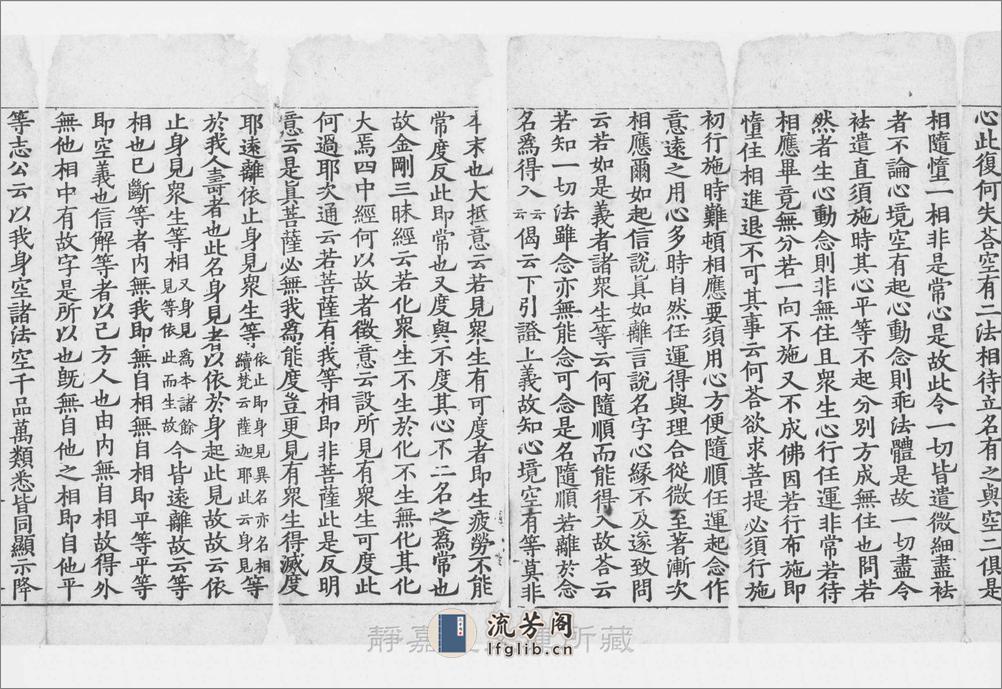 心此復何失荅空有二法相待立名有之與空二俱是
相隨憻一相非是常心是故此令一切皆遣微細盡祛
者不論心境空有起心動念則乖法體是故一切盡令
祛遣直須施時其心平等不起分別方成無住也問若
然者生心動念則非無住且衆生心行任運非常若待
相應畢竟無分若一向不施又不成佛因若行布施即
憻住相進退不可其事云何荅欲求菩提必須行施
初行施時難頓相應要須用心方便隨順任運起念作
意遠之用心多時自然任運得與理合從微至著漸次
相應爾如起信說真如離言說名字心緣不及遂致問
云若如是義者諸衆生等云何隨順而能得入故荅云
若知一切法雖念亦無能念可念是名隨順若離於念
名爲得入云云偈云下引證上義故知心境空有等莫非
斗末也大抵意云若見衆生有可度者即生疲勞不能
常度反此即常也又度與不度其心不二名之爲常也
故金剛三昧經云若化衆生不生於化不生無化其化
大焉四中經何以故者徵意云設所見有衆生可度此
何過耶次通云若菩薩有我等相即非菩薩此是反明
意云是真菩薩必無我爲能度豈更見有衆生得滅度
耶遠離依止身見衆生等依止即身見異名亦名相等續梵云薩迦耶此云身見等
於我人壽者也此名身見者以依於身起此見故故云依
止身見衆生等相又身見爲本諸餘見等依此而生故今皆遠離故云等
相也已斷等者內無我即無自相無自相即平等平等
即空義也信解等者以己方人也由內無自相故得外
無他相中有故字是所以也旣無自他之相即自他平
等志公云以我身空諸法空千品萬類悉皆同顯示降
靜嘉 所藏
流芳阁
lfglib.cn